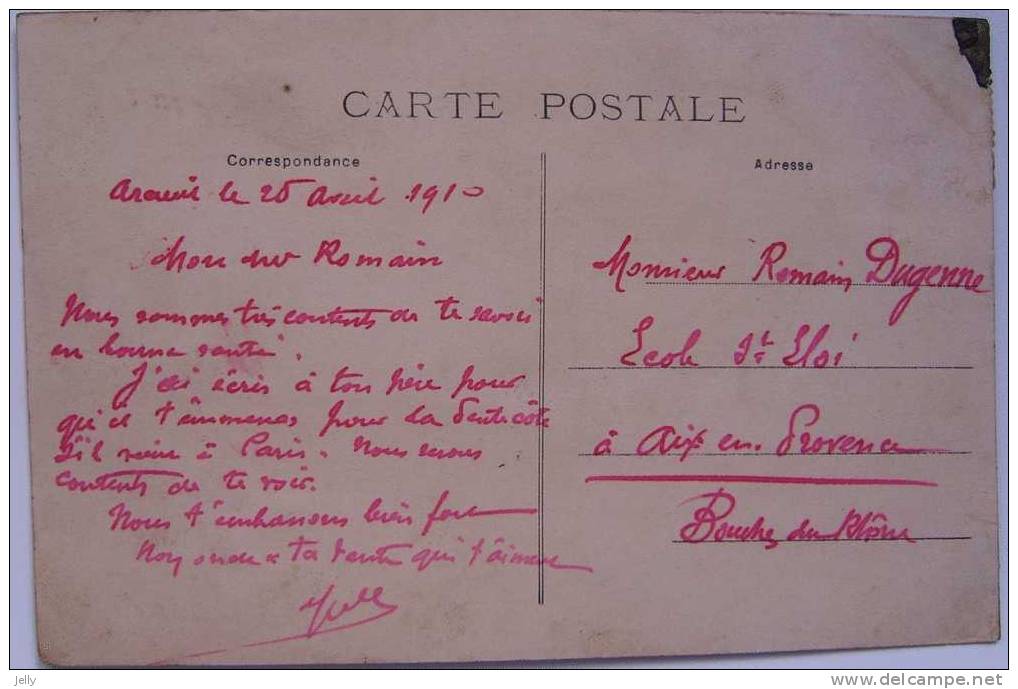 CARTE POSTALE
Correspondance
Arcueil le 25 Avril 1910
Mon cher Romain
Nous sommes très contents de te savoir
en bonne santé.
J'ai écris à ton père pour
qu'il t'ammenas pour la Pentecôte
s'il vient à Paris. Nous serons
contents de te voir.
Nous t'embrassons bien fort
Ton oncle & ta tante qui t'aiment
Adresse
Monsieur Romain Dugenne
Ecole St Eloi
à Aix en Provence
Bouches du Rhône
Jelly
www.delcampe.net